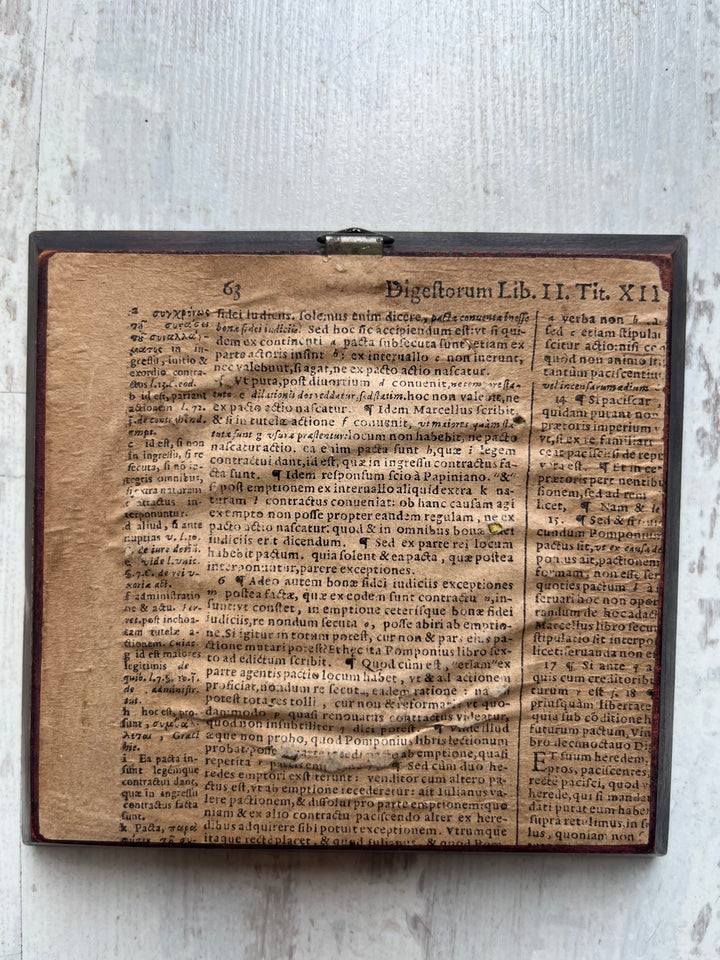 63
Digestorum Lib. II. Tit. XII
a συγχρόνως
in in-
gressu, initio &
exordio contra-
ctus l.13.C.eod.
b id est, pariant
actionem l. 72.
§. de contrahend.
empt.
c id est, si non
in ingressu, si re
secuta, si nō in-
tegris omnibus,
si extra naturam
contractus in-
terponuntur.
d aliud, si ante
nuptias v. l.10.
C. de iure dotiū.
e vide l. vnic.
§.7.C. de rei v-
xoriæ act.
f administratio
ne & actu.
post inchoa-
tam tutelæ a-
ctionem. Cuiac.
g id est maiores
legitimis de
quib. l.7.§. 10.ī.
de administr.
tut.
h hoc est, pro-
sunt, Græci
hic.
i Ea pacta in-
sunt legemque
contractui dant,
quæ in ingressu
contractus facta
sunt.
k Pacta, παρὰ
fidei iudiciis. solemus enim dicere, pacta conuenta inesse
bonæ fidei iudiciis. Sed hoc sic accipiendum est: vt si qui-
dem ex continenti a pacta subsecuta sunt, etiam ex
parte actoris insint b: ex interuallo c non inerunt,
nec valebunt, si agat, ne ex pacto actio nascatur.
Vt puta, post diuortium d conuenit, ne tempore statu-
to e dilationis dos reddatur, sed statim. hoc non valebit, ne
ex pacto actio nascatur. ¶ Idem Marcellus scribit.
& si in tutelæ actione f conuenit, vt maiores quàm sta-
tutæ sunt g vsuræ præstentur: locum non habebit, ne pacto
nascatur actio. ea enim pacta sunt h, quæ i legem
contractui dant, id est, quæ in ingressu contractus fa-
cta sunt. ¶ Idem responsum scio à Papiniano. "&"
si post emptionem ex interuallo aliquid extra k na-
turam l contractus conueniat: ob hanc causam agi
ex empto non posse propter eandem regulam, ne ex
pacto actio nascatur. quod & in omnibus bonæ fidei
iudiciis erit dicendum. ¶ Sed ex parte rei locum
habebit pactum. quia solent & ea pacta, quæ postea
interponuntur, parere exceptiones.
6 ¶ Adeo autem bonæ fidei iudiciis exceptiones
m postea factæ, quæ ex eodem sunt contractu n, in-
sunt: vt constet, in emptione ceterisque bonæ fidei
iudiciis, re nondum secuta o, posse abiri ab emptio-
ne. Si igitur in totum potest, cur non & pars eius pa-
ctione mutari potest? Et hec ita Pomponius libro sex-
to ad edictum scribit. ¶ Quod cùm est, "etiam" ex
parte agentis pactio locum habet, vt & ad actionem
proficiat, nondum re secuta, eadem ratione: na
potest tota res tolli, cur non & reformari? vt quo-
dammodo p quasi renouatus contractus videatur,
quod non insubtiliter q dici potest. ¶ Vnde illud
æque non probo, quod Pomponius libris lectionum
probat, posse parte ab emptione, quasi
repetita ¶ Sed cùm duo he-
redes emptori exstiterunt: venditor cum altero pa-
ctus est, vt ab emptione recederetur: ait Iulianus va-
lere pactionem, & dissolui pro parte emptionem: quo-
niam & ex alio contractu paciscendo alter ex here-
dibus adquirere sibi potuit exceptionem. Vtrumque
itaque rectè placet, & quod Iulianus, & quod Pom-
a verba non
sed c etiam stipula
scitur actio: nisi
quòd non animo
tantùm paciscent
vel incensarum ædium
14 ¶ Si paciscar
quidam putant no
prætoris imperium
vt, si ex re familiari
ceat pacisci: de repe
vera est. ¶ Et in ce
prætoris pert nentib
sionem, sed ad rem
licet, ¶ Nam & le
15. ¶ Sed & si
cundum Pomponium
pactus sit, vt ex causa de
ponius ait, pactionem
formam, non esse ser
quoties pactum
seruari hoc non opor
randum de hoc
Marcellus libro secun
stipulatio sit interpo
licet: seruanda non es
17 ¶ Si ante
quis cum creditorib
turum r est s. 18 ¶
priusquàm libertate
quia sub cōditione h
futurum pactum, vin
bro decimoctauo Di
ET suum heredem,
pros, paciscentes,
recte pacisci, quod
herede, qui si mandat
dati putat eum habere
supra retulimus, in
lus, quoniam non